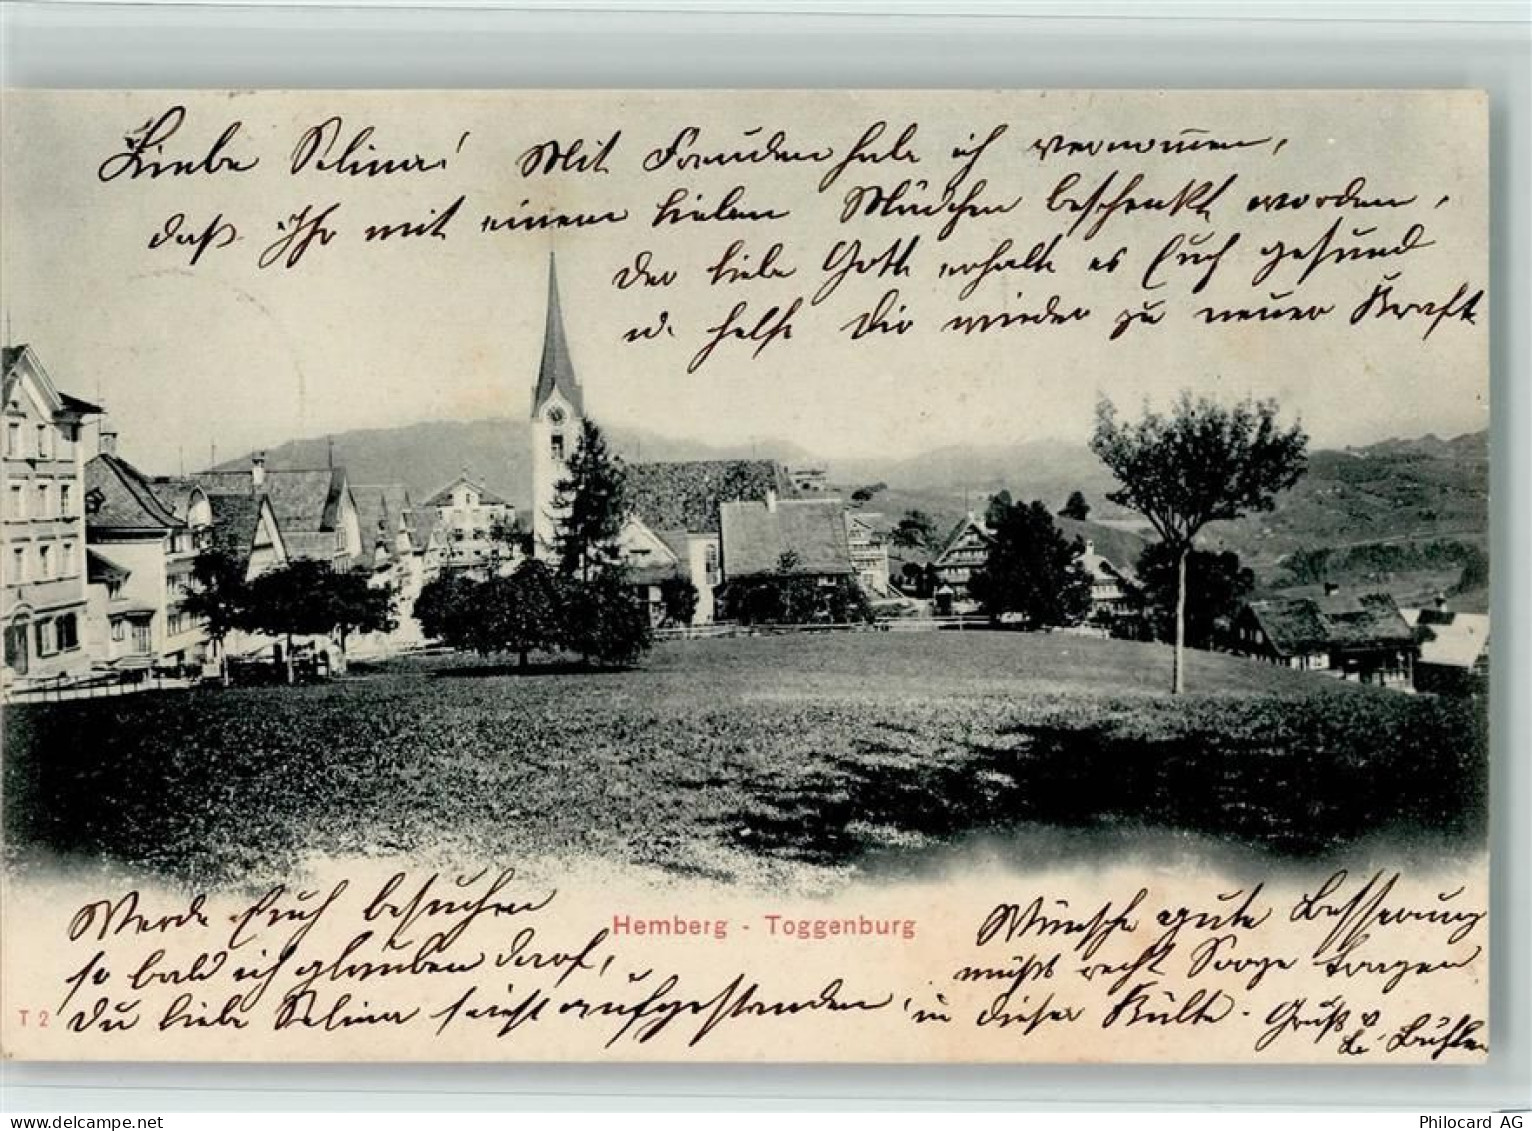 Liebe Selina! Mit Freuden habe ich vernomen,
daß Ihr mit einem lieben Mädchen beschenkt worden,
der liebe Gott erhalte es Euch gesund
u. helfe Dir wieder zu neuer Kraft
Werde Euch besuchen
so bald ich glauben darf,
Du liebe Selina seiest aufgestanden,
Hemberg - Toggenburg
T 2
Wünsche gute Besserung
müßt recht Sorge tragen
in dieser Kälte. Gruß v.
Bühler
Philocard AG